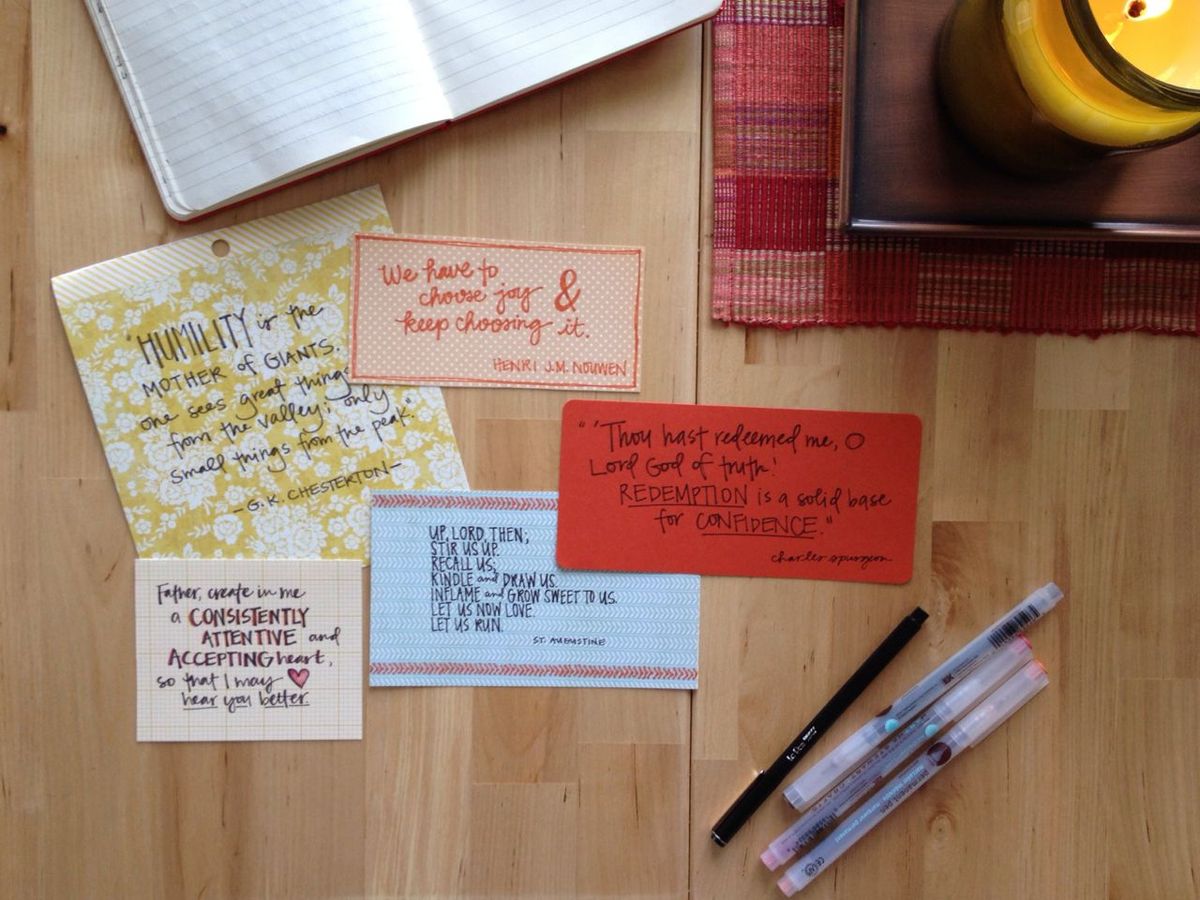 "HUMILITY is the
MOTHER of GIANTS.
one sees great things
from the valley; only
small things from the peak."
- G.K. CHESTERTON -
We have to
choose joy &
keep choosing it.
HENRI J.M. NOUWEN
"'Thou hast redeemed me, O
Lord God of truth.'
REDEMPTION is a solid base
for CONFIDENCE."
charles spurgeon
UP, LORD, THEN;
STIR US UP.
RECALL US;
KINDLE and DRAW US.
INFLAME and GROW SWEET TO US.
LET US NOW LOVE.
LET US RUN.
ST. AUGUSTINE
Father, create in me
a CONSISTENTLY
ATTENTIVE and
ACCEPTING heart,
so that I may
hear you better.
Le Pen
permanent pen